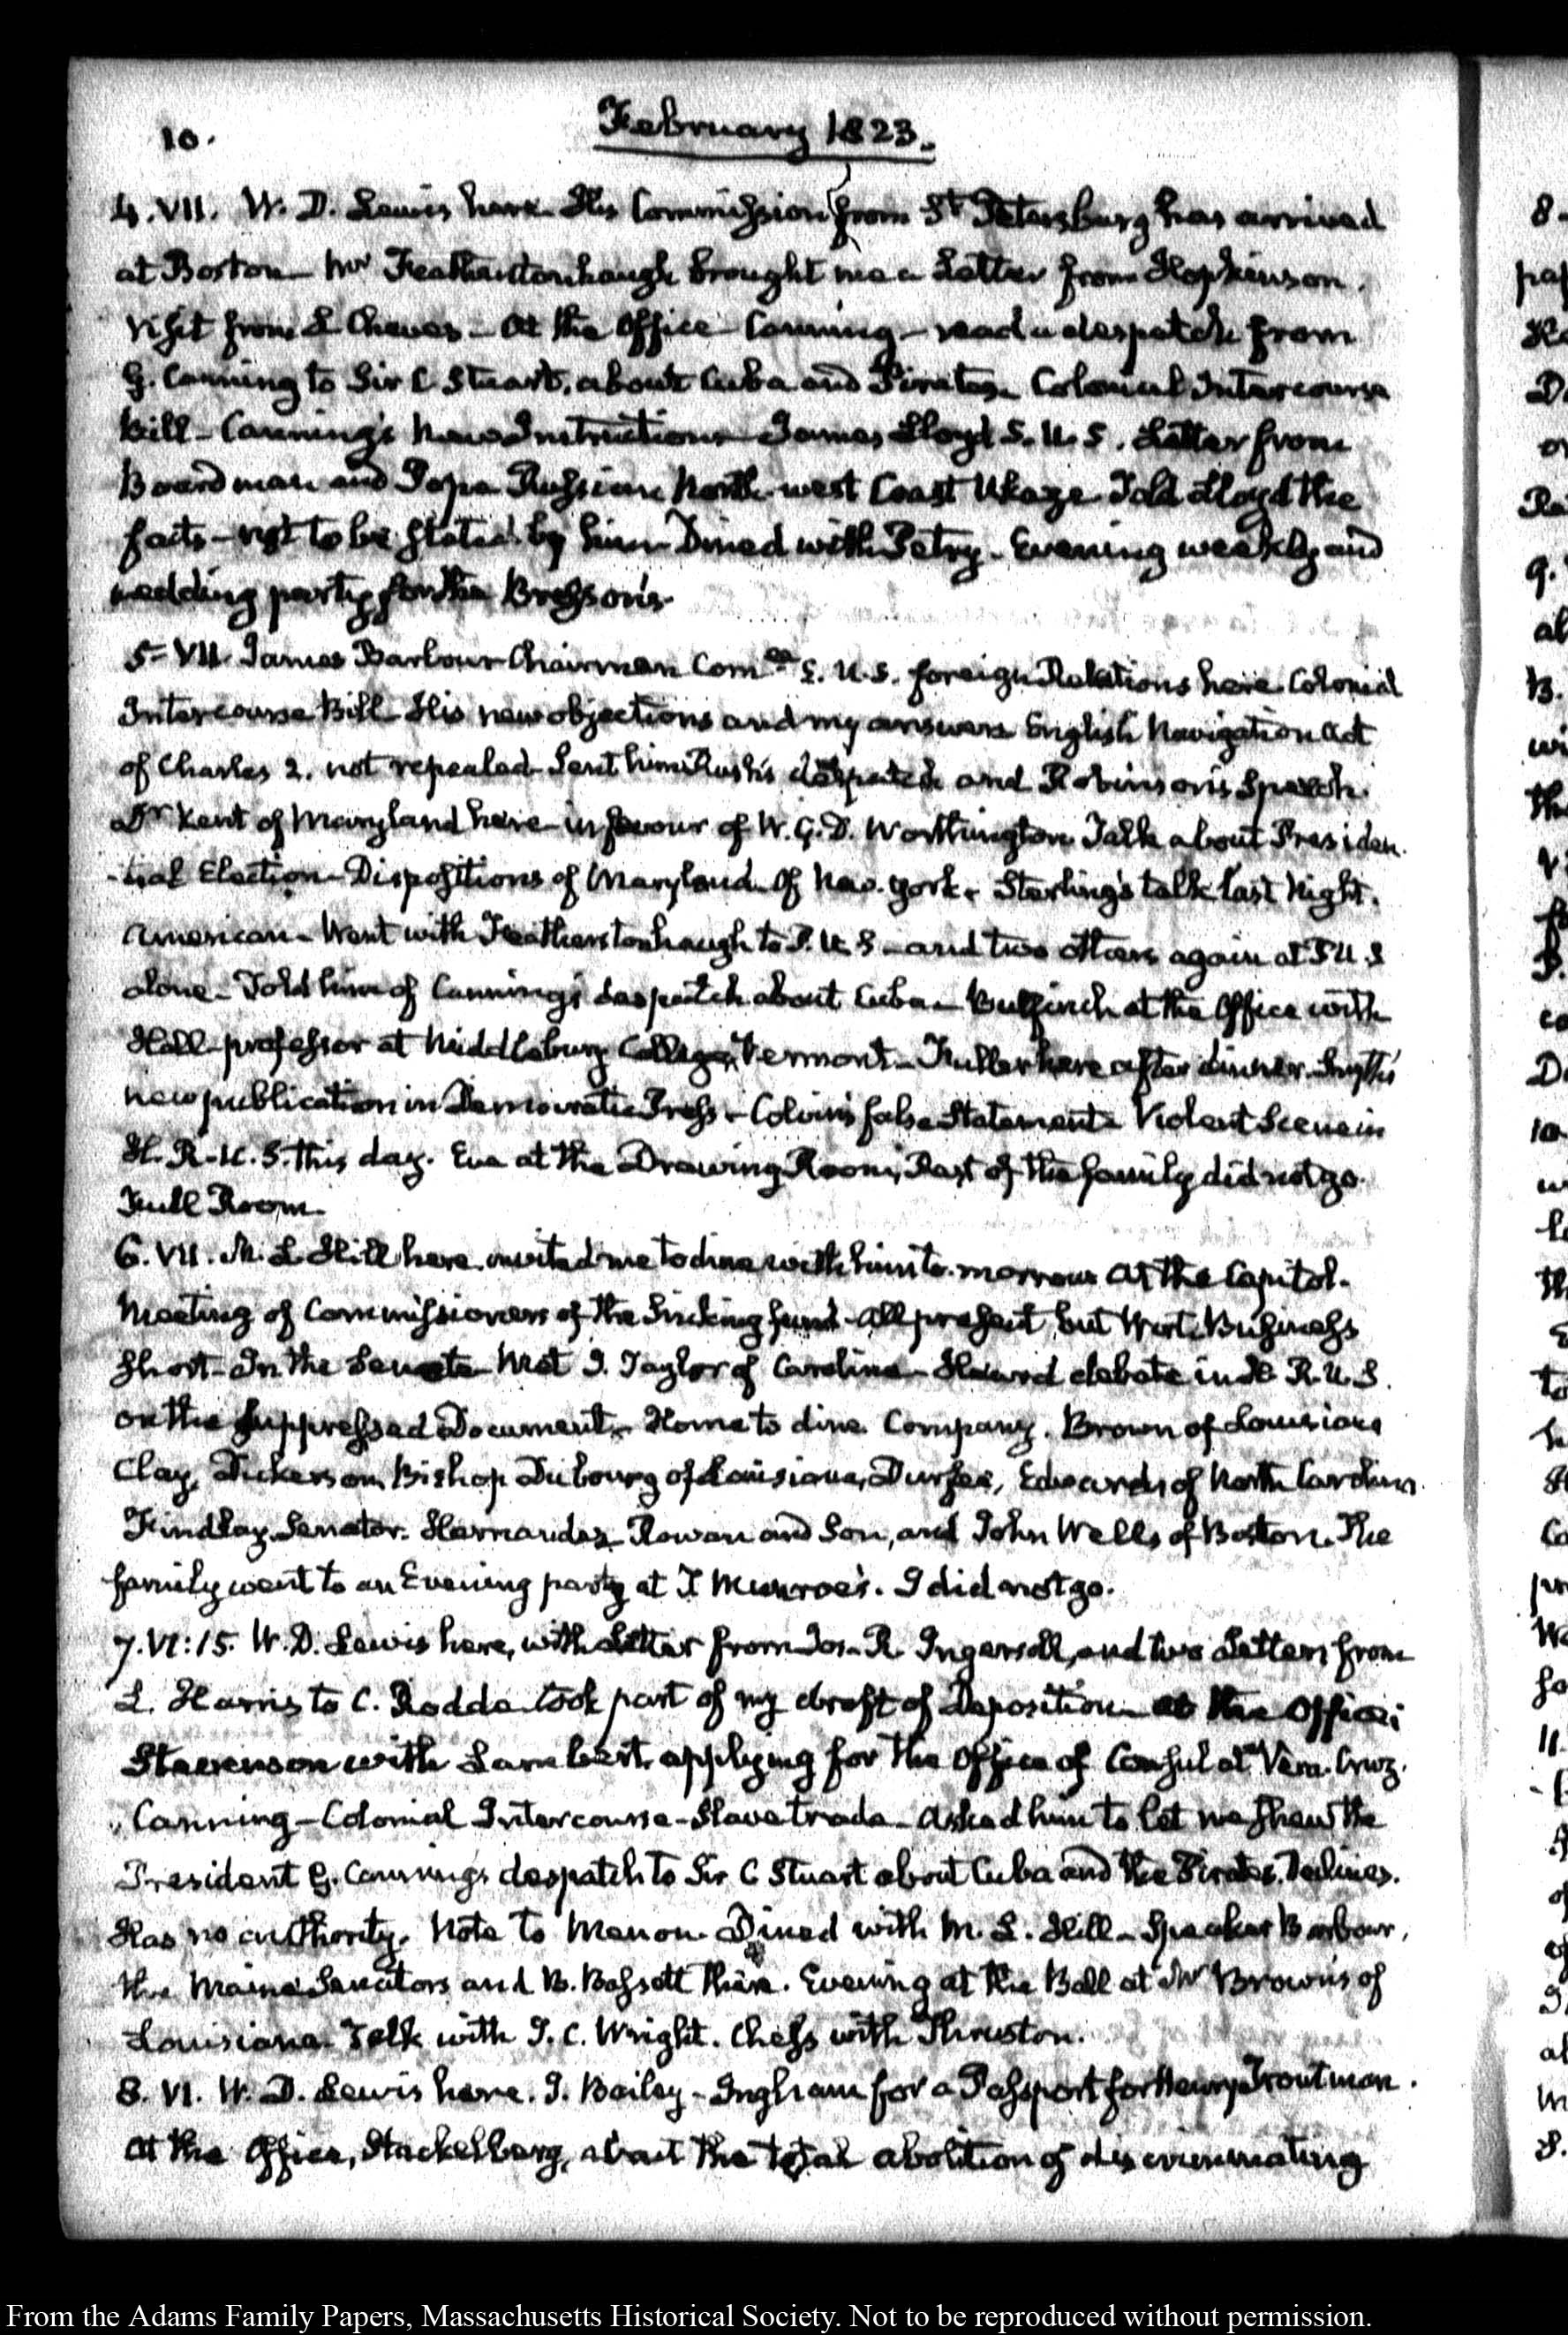 10.
February 1823.
4. VII. W. D. Lewis here. His Commission from St Petersburg has arrived
at Boston – Mr Featherstonhaugh brought me a Letter from Hopkinson.
Visit from L Cheves – At the Office Canning – read a despatch from
G. Canning to Sir C Stuart, about Cuba and Pirates. Colonial Intercourse
Bill – Canning's New Instructions – James Lloyd S. U. S. Letter from
Boardman and Pope Russian North-west Coast Ukaze Told Lloyd the
facts – not to be stated by him – Dined with Petry – Evening weekly and
wedding party for the Bresson's.
5– VII. James Barbour Chairman Comee S. U. S. foreign Relations here Colonial
Intercourse Bill His new objections and my answers English Navigation Act
of Charles 2. not repealed – Sent him Rush's despatch and Robinson's Speech.
Dr Kent of Maryland here – in favour of W. G. D. Worthington Talk about Presiden-
-tial Election – Dispositions of Maryland – Of New-York – Sterling's talk last Night.
American – Went with Featherstonhaugh to P. U. S – and two others again at P U. S
alone – Told him of Canning's despatch about Cuba – Bulfinch at the Office with
Hall – professor at Middlebury College, Vermont – Fuller here after dinner.
new publication in Democratic Press – Colvin's false Statements Violent Scene in
H. R. U. S. this day. Eve at the Drawing Room, Rest of the family did not go.
Full Room.
6. VII. M. L Hill here. invited me to dine with him to-morrow at the Capitol.
Meeting of Commissioners of the Sinking fund – all present but Wirt. Business
short – In the Senate Met J. Taylor of Carolina – Heard debate in H. R. U. S.
on the suppressed Document – Home to dine Company. Brown of Louisiana
Clay, Dickerson, Bishop Dubourg of Louisiana, Durfee, Edwards of North Carolina
Findlay Senator. Hernandez – Rowan and Son, and John Wells of Boston. The
family went to an Evening party at T Munroe's. I did not go.
7. VI: 15. W. D. Lewis here, with Letter from Jos. R Ingersoll, and two Letters from
L. Harris to C. Rodde took part of my draft of Deposition – at the Office;
Stevenson with Lambert, applying for the Office of Consul at Vera-Cruz.
Canning – Colonial Intercourse – Slave trade – Asked him to let me shew the
President G. Canning's despatch to Sir C Stuart about Cuba and the Pirates. Declines.
Has no authority. Note to Menou. Dined with M. L. Hill – Speaker Barbour,
the Maine Senators and B. Bassett there. Evening at the Ball at Mr Brown's of
Louisiana. Talk with J. C. Wright. Chess with Thruston.
8. VI. W. D. Lewis here. J. Bailey – Ingham for a Passport for Henry Troutman.
At the Office, Stackelberg, about the total abolition of discriminating
From the Adams Family Papers, Massachusetts Historical Society. Not to be reproduced without permission.